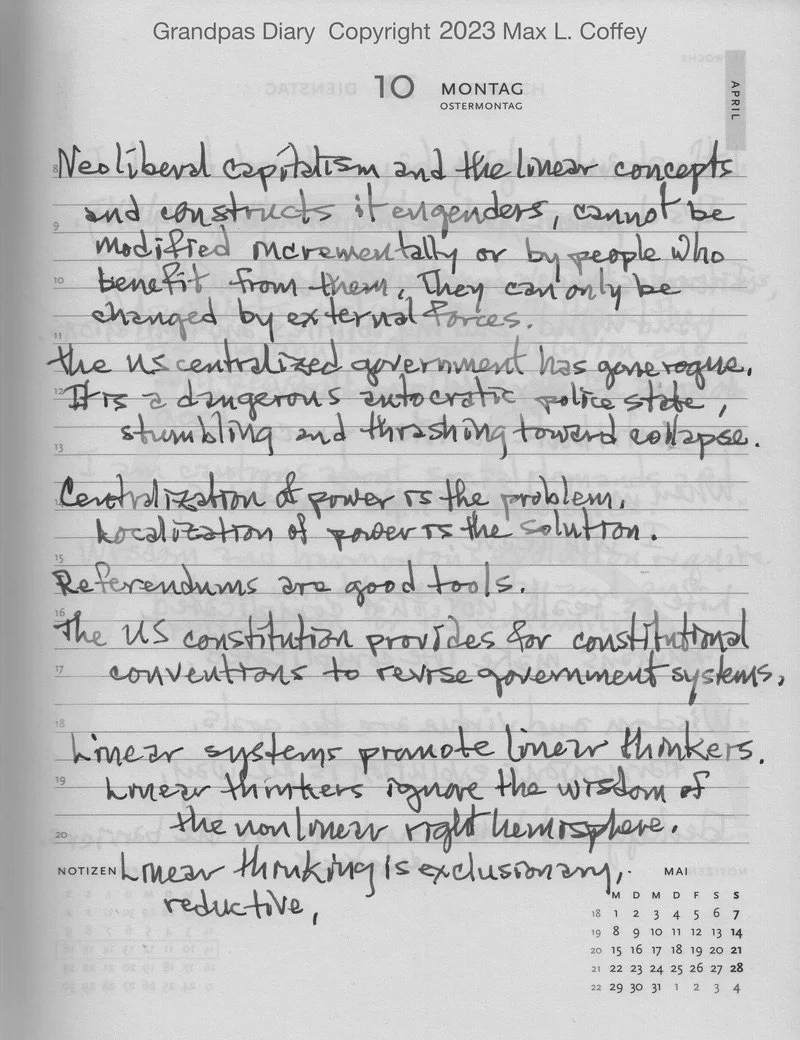 Grandpas Diary Copyright 2023 Max L. Coffey
10 MONTAG
OSTERMONTAG
APRIL
Neoliberal capitalism and the linear concepts
and constructs it engenders, cannot be
modified incrementally or by people who
benefit from them. They can only be
changed by external forces.
The US centralized government has gone rogue.
It is a dangerous autocratic police state,
stumbling and thrashing toward collapse.
Centralization of power is the problem.
Localization of power is the solution.
Referendums are good tools.
The US constitution provides for constitutional
conventions to revise government systems.
Linear systems promote linear thinkers.
Linear thinkers ignore the wisdom of
the nonlinear right hemisphere.
Linear thinking is exclusionary,
reductive,
8
9
10
11
12
13
15
16
17
18
19
20
NOTIZEN
MAI
M D M D F S S
18 1 2 3 4 5 6 7
19 8 9 10 11 12 13 14
20 15 16 17 18 19 20 21
21 22 23 24 25 26 27 28
22 29 30 31 1 2 3 4